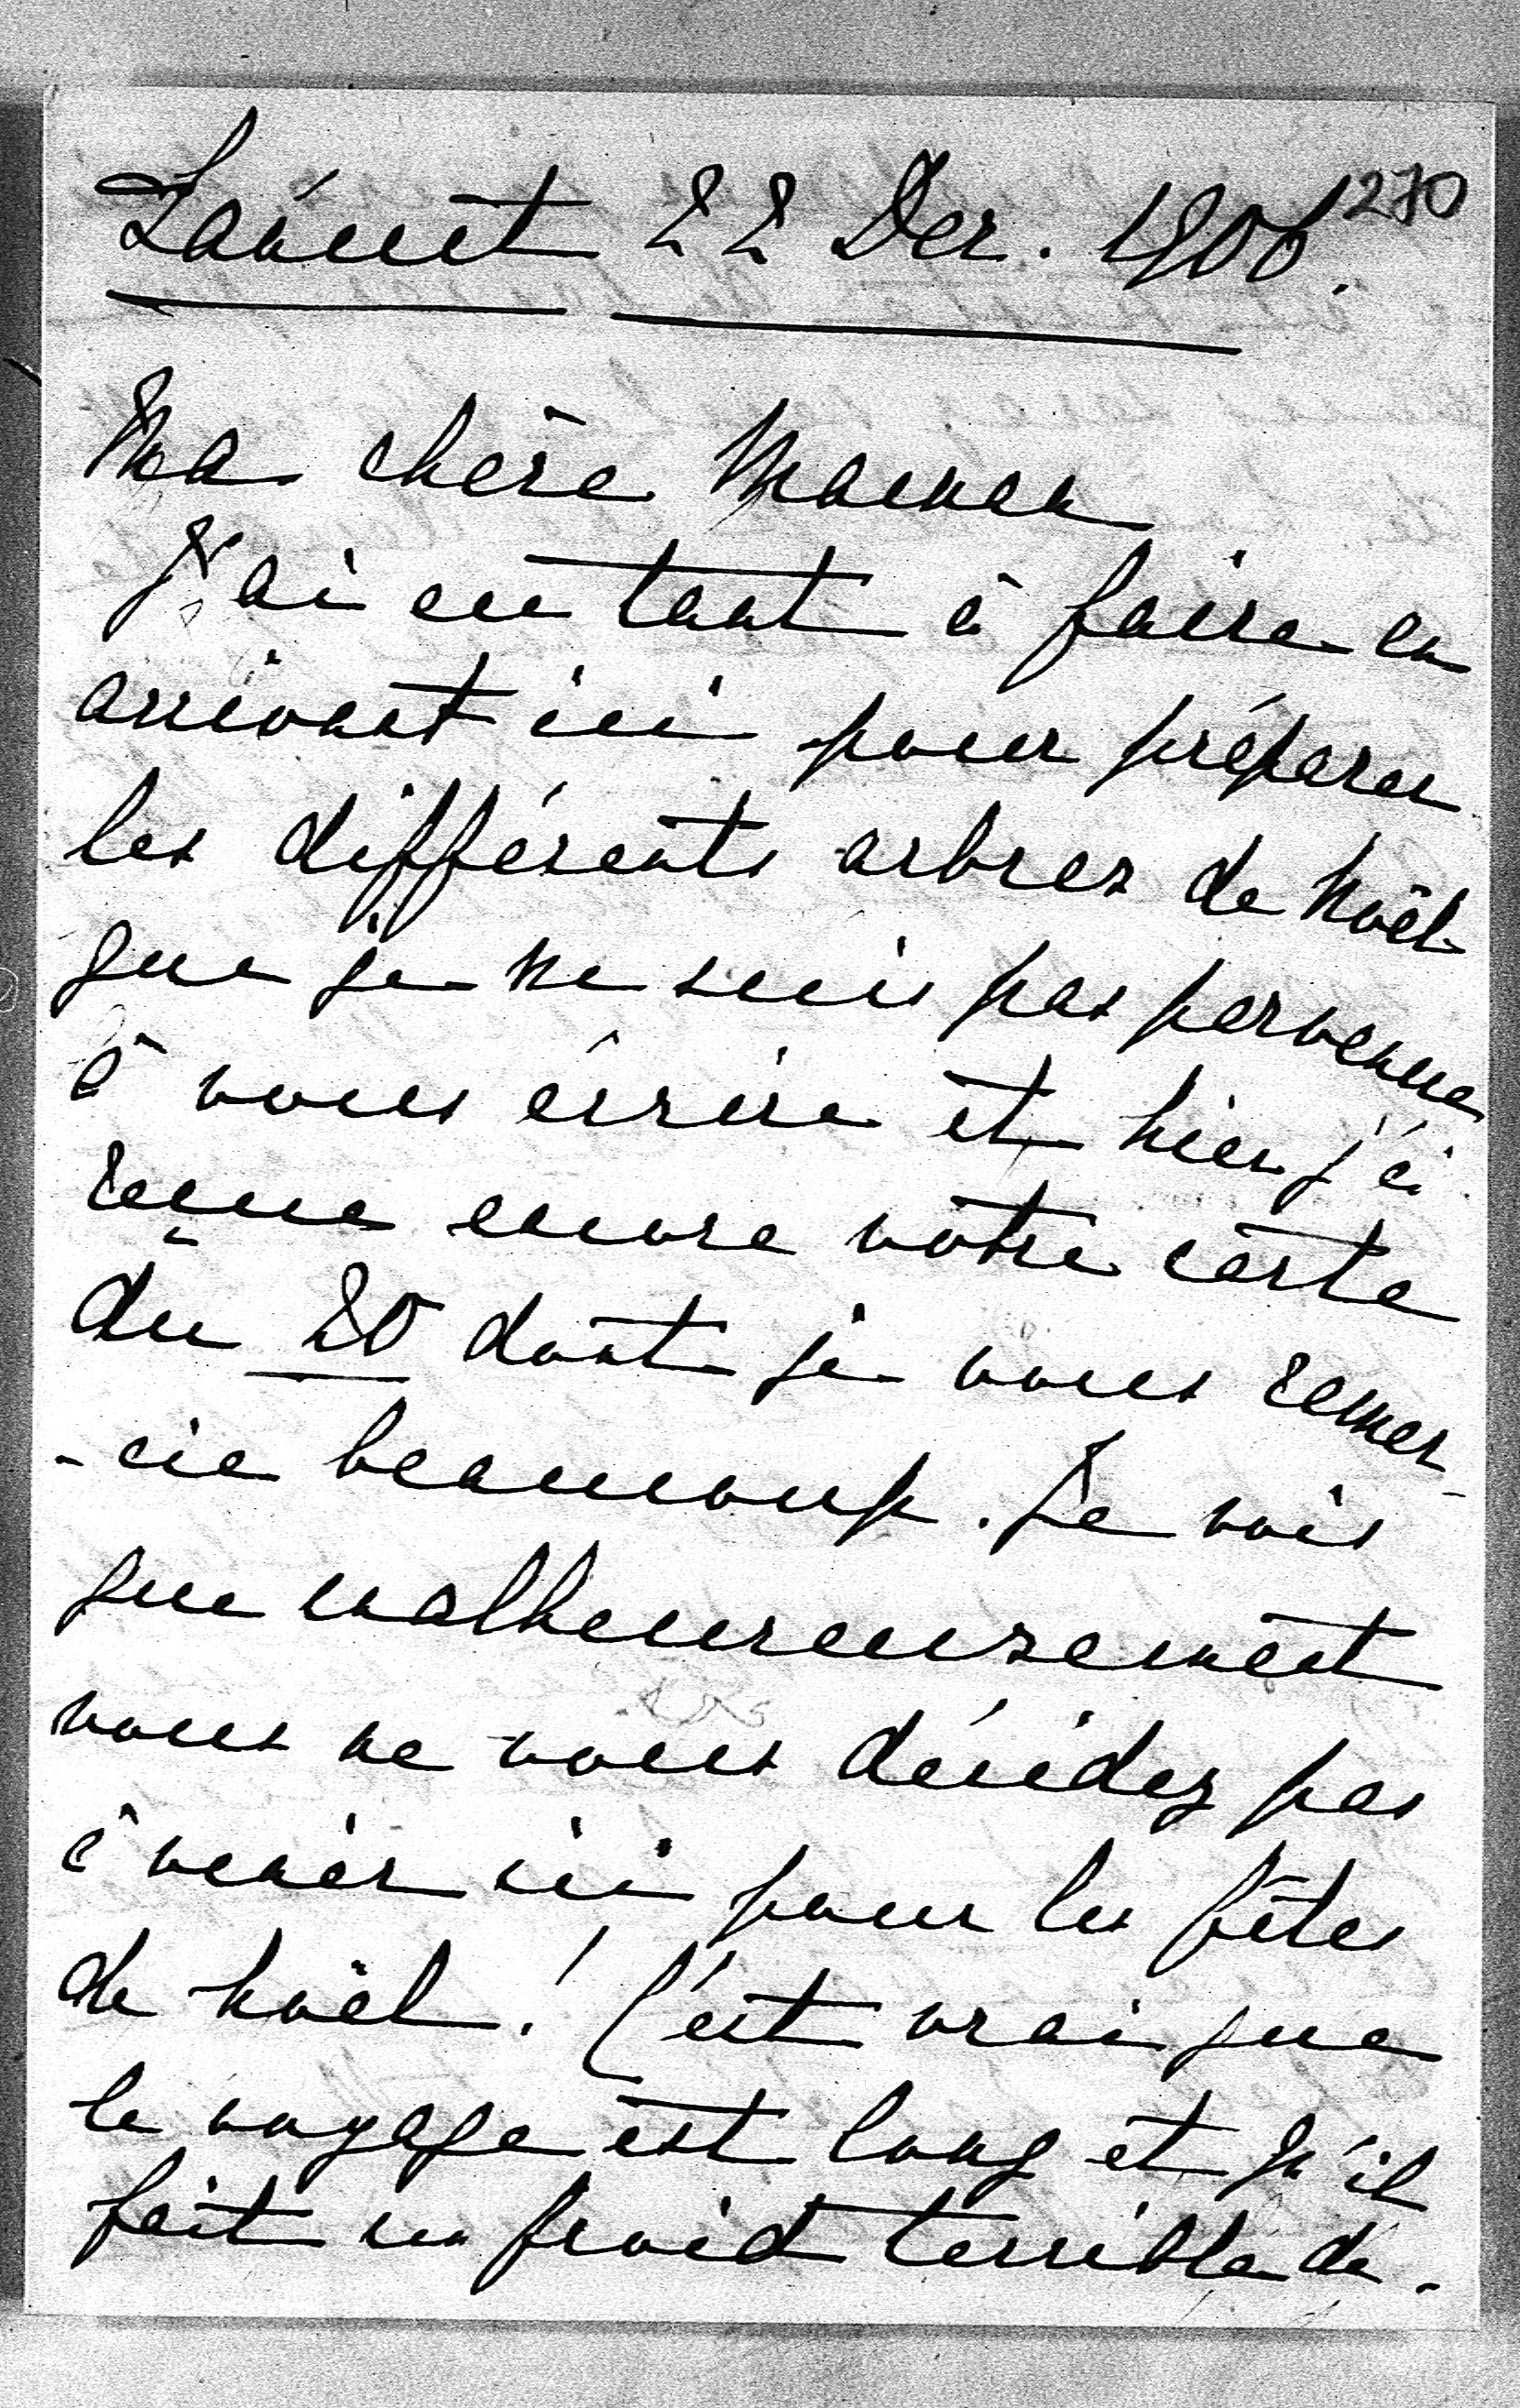 Łańcut 22 Dec. 1906.
270
Ma chère Maman
J'ai eu tant à faire en
arrivant ici pour préparer
les différents arbres de Noël
que je ne suis pas parvenue
à vous écrire et hier j'ai
reçue encore votre carte
du 20 dont je vous remer-
-cie beaucoup. Je vois
que malheureusement
vous ne vous décidez pas
à venir ici pour les fêtes
de Noël! C'est vrai que
le voyage est long et qu'il
fait un froid terrible de.